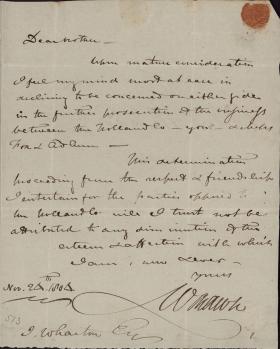 Dear
Upon mature consideration
I feel my mind most at ease in
declining to be concerned on either side
in the further prosecution of the business
between the Holland Co — your
Fox & Adlum —
This determination
proceeding from the respect & friendship
I entertain for the parties opposed to
the Holland Co will I trust not be
attributed to any diminution of the
esteem & affection with which
I am, now & ever
yours
Nov. 1803
J. Wharton Esq